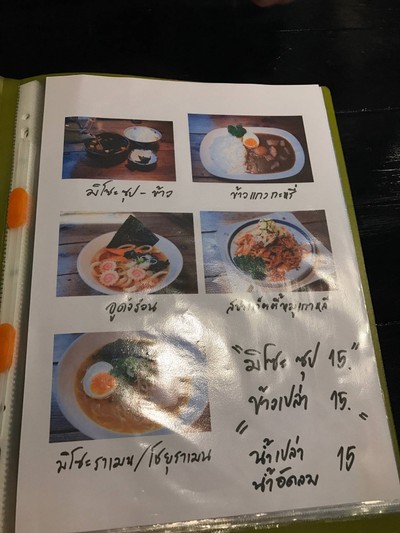 มิโซะซุป - ข้าว
ข้าวแกงกะหรี่
อูด้งร้อน
สปาเก็ตตี้หมูเกาหลี
"มิโซะซุป 15."
ข้าวเปล่า 15.
มิโซะราเมน/โชยุราเมน
น้ำเปล่า
น้ำอัดลม 15